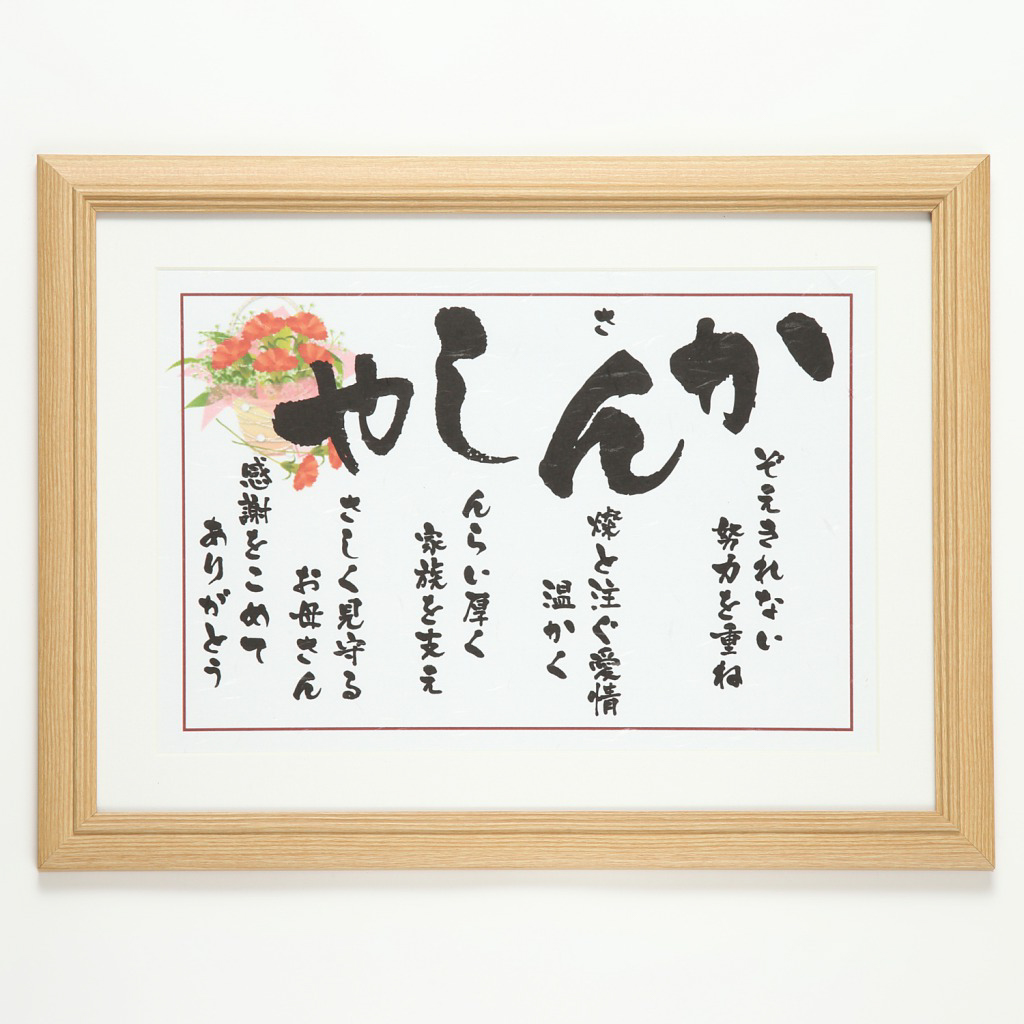 かぞえきれない
努力を重ね
さん燦と注ぐ愛情
温かく
しんらい厚く
家族を支え
やさしく見守る
お母さん
感謝をこめて
ありがとう